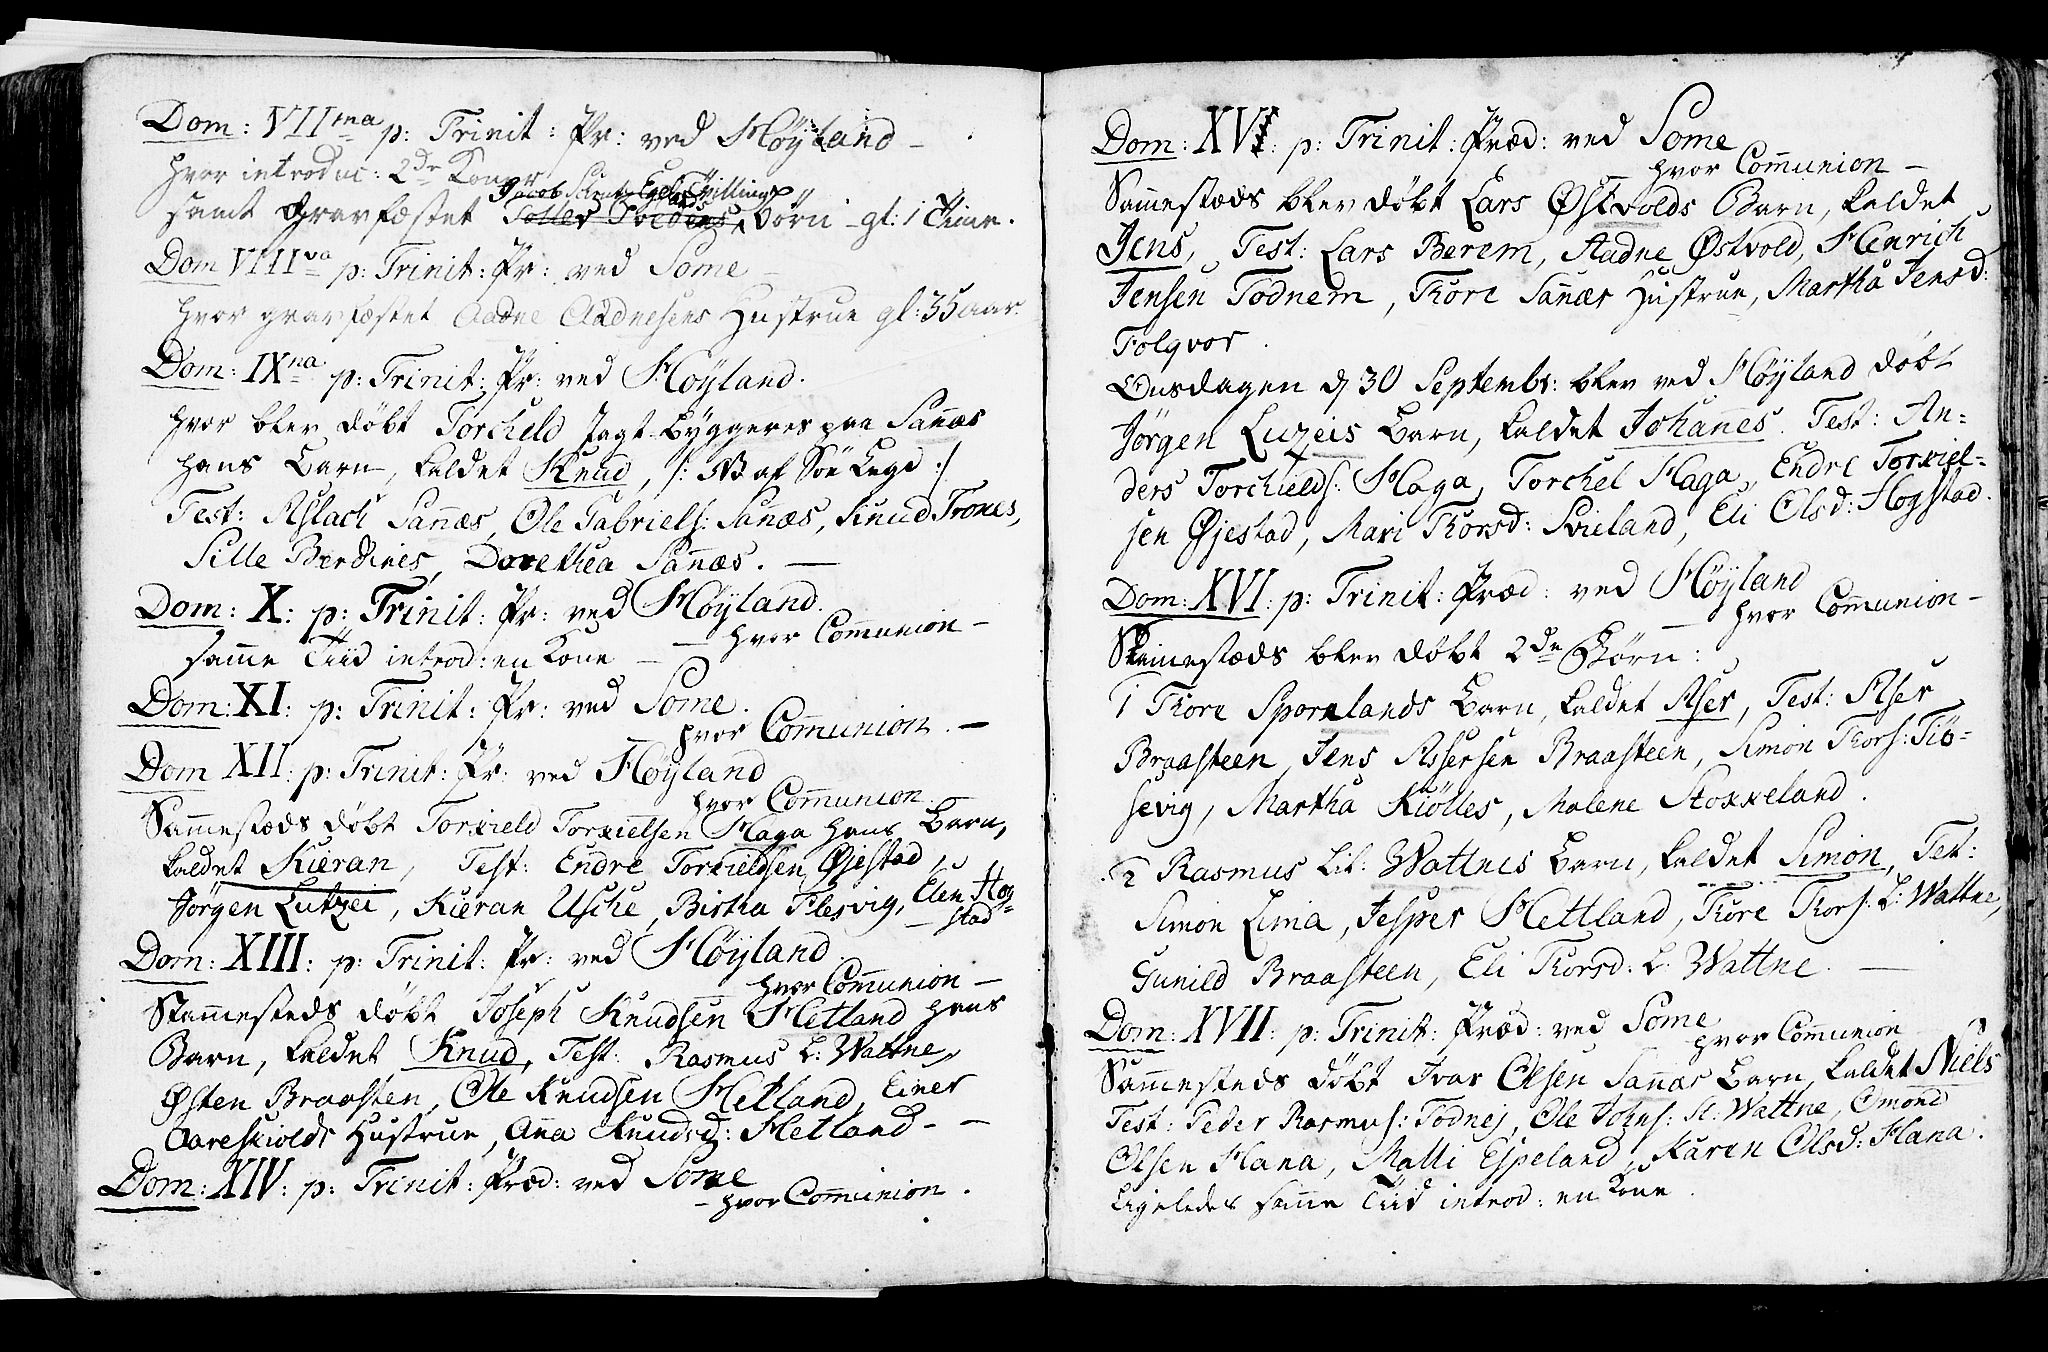 Dom: VII ma p: Trinit: Pr: ved Høyland
hvor introduc: 2de Koner
Jacob Tvillings
samt gravfæstet Börn gl: 1 Time.
Dom VIII va p: Trinit: Pr: ved Some
hvor gravfæstet Aadne Aadnesens Hustrue gl: 35 aar.
Dom: IX na p: Trinit: Pr: ved Høyland.
hvor blev døbt Torcheld Jagt-byggeres paa Sañæs
hans Barn, kaldet Knud, /: NB af Söe Lege :/
Test: Aslach Sañæs, Ole Gabriels: Sañæs, Knud Trones,
Sille Berdines, Dorethea Sañæs. —
Dom: X: p: Trinit: Pr: ved Høyland.
— hvor Com̃union —
sam̃e Tiid introd: en Kone —
Dom: XI: p: Trinit: Pr: ved Some.
hvor Com̃union. —
Dom XII: p: Trinit: Pr: ved Høyland
hvor Com̃union
Sam̃estæds døbt Torkield Torkielsen Haga hans Barn,
kaldet Kieran, Test: Endre Torkieldsen Øjestad,
Jörgen Lutzei, Kieran Usche, Birtha Flesvig, Elen Hog-
stad
Dom: XIII: p: Trinit: Pr: ved Høyland
hvor Com̃union —
Sam̃esteds døbt Joseph Knudsen Hetland hans
Barn, kaldet Knud, Test: Rasmus L: Wattne,
Østen Braasten, Ole Knudsen Hetland, Einer
Aareskiolds Hustrue, Aña Knudsd: Hetland - -
Dom: XIV: p: Trinit: Præd: ved Some
— hvor Com̃union.
Dom: XV: p: Trinit: Præd: ved Some
hvor Com̃union —
Sam̃estæds blev døbt Lars Østvolds Barn, kaldet
Jens, Test: Lars Berem, Aadne Østvold, Henrich
Jensen Todnem, Thore Sañæs Hustrue, Martha Jensd:
Folqvor.
Onsdagen d 30 Septembr: blev ved Høyland döbt
Jörgen Luzeis Barn, kaldet Johañes. Test: An-
ders Torchields: Haga, Torchel Haga, Endre Torkiel-
sen Øjestad, Mari Thorsd: Svieland, Eli Olsd: Hogstad.
Dom: XVI: p: Trinit: Præd: ved Høyland
— hvor Com̃union —
Sam̃estæds blev døbt 2de Börn:
1 Thore Sporelands Barn, kaldet Aser, Test: Aser
Braasteen, Jens Assersen Braasteen, Simon Thors: Tiö-
sevig, Martha Kiölles, Malene Stokkeland.
2 Rasmus Lil: Wattnes Barn, kaldet Simon, Tet:
Simon Lima, Jesper Hettland, Thore Thors: L: Wattne,
Gunild Braasteen, Eli Thorsd: L: Wattne. —
Dom: XVII: p: Trinit: Præd: ved Some
hvor Com̃union
Sam̃esteds döbt Ivar Olsen Sañæs Barn, kaldet Niels
Test: Peder Rasmus: Todnej, Ole Johns: St: Wattne, Omond
Olsen Hana, Malli Espeland, Karen Olsd: Hana.
Ligeledes sam̃e Tiid introd: en Kone.